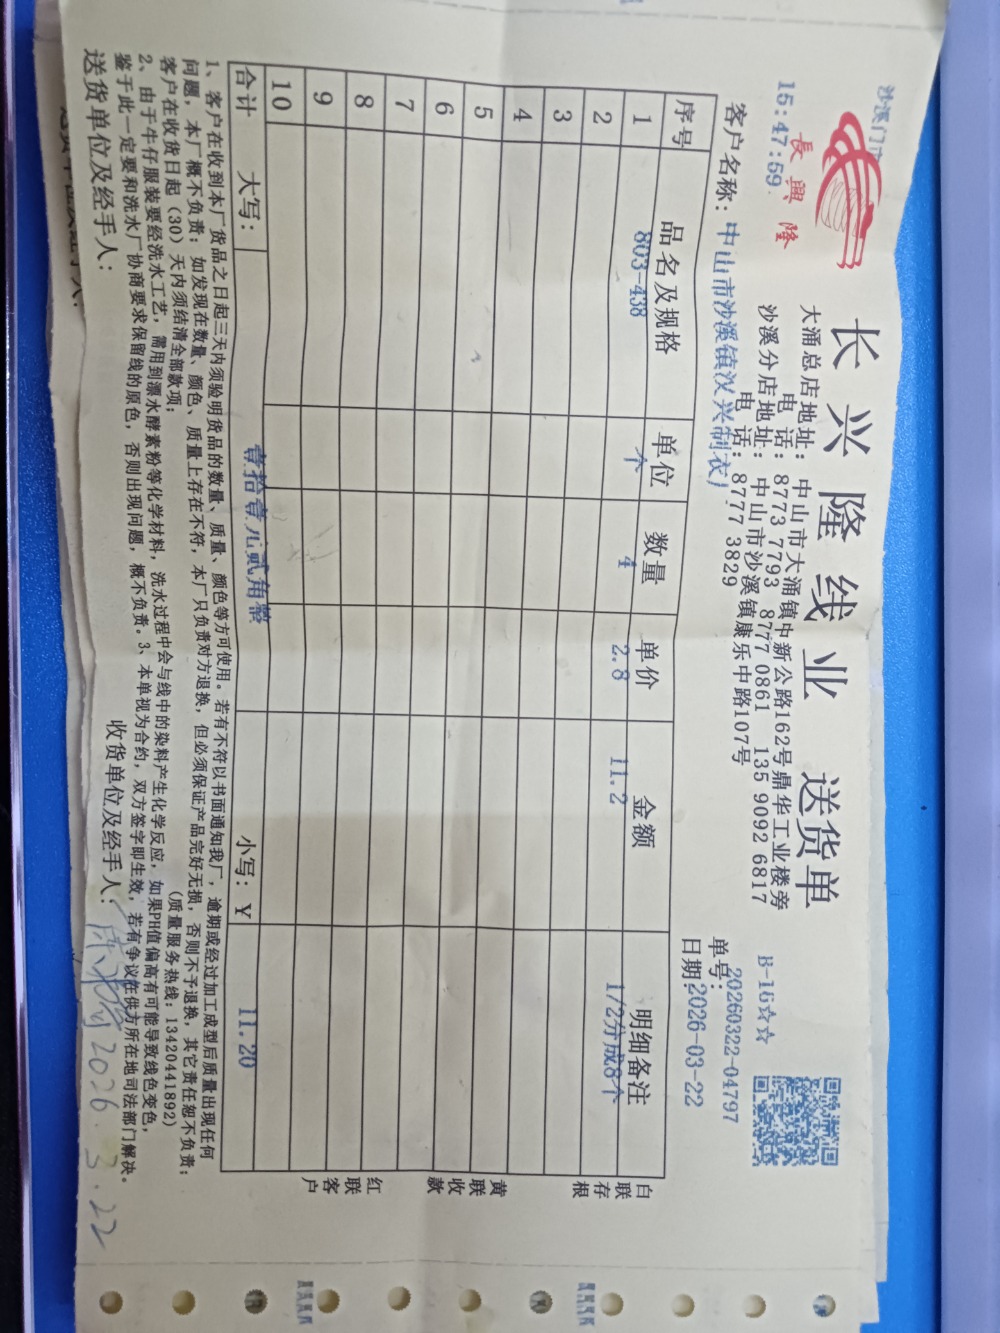 沙溪门
長興隆
15:47:59
长兴隆线业 送货单
大涌总店地址:中山市大涌镇中新公路162号鼎华工业楼旁
电 话:8773 7793 8777 0861 135 9092 6817
沙溪分店地址:中山市沙溪镇康乐中路107号
电 话:8777 3829
B-16☆☆
单号:20260322-04797
客户名称:中山市沙溪镇汉兴制衣厂
日期:2026-03-22
序号 品名及规格 单位 数量 单价 金额 明细备注
1 803-438 个 4 2.8 11.2 1/2分成8个
2
3
4
5
6
7
8
9
10
合计 大写:壹拾壹元贰角整 小写:¥ 11.20
白联存根
黄联收款
红联客户
1、客户在收到本厂货品之日起三天内须验明货品的数量、质量、颜色等方可使用。若有不符以书面通知我厂,逾期或经过加工成型后质量出现任何
问题,本厂概不负责;如发现在数量、颜色、质量上存在不符,本厂只负责对方退换,但必须保证产品完好无损,否则不予退换,其它责任恕不负责;
客户在收货日起(30)天内须结清全部款项; (质量服务热线:13420441892)
2、由于牛仔服装要经洗水工艺,需用到漂水酵素粉等化学材料,洗水过程中会与线中的染料产生化学反应,如果PH值偏高有可能导致线色变色,
鉴于此一定要和洗水厂协商要求保留线的原色,否则出现问题,概不负责。3、本单视为合约,双方签字即生效,若有争议在供方所在地司法部门解决。
送货单位及经手人: 收货单位及经手人:
2026.3.22